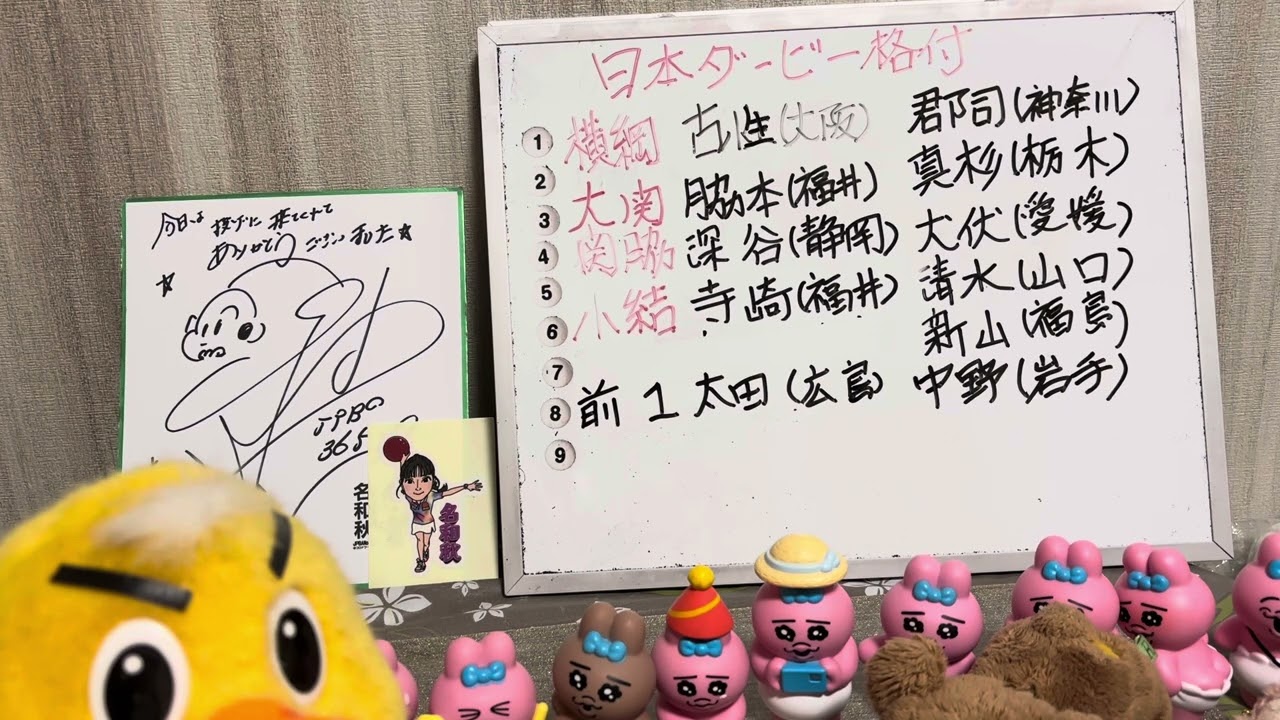 日本ダービー格付
1 横綱 古性(大阪) 郡司(神奈川)
2 大関 脇本(福井) 真杉(栃木)
3
4 関脇 深谷(静岡) 犬伏(愛媛)
5 小結 寺崎(福井) 清水(山口)
6
新山(福島)
7
8 前 1 太田(広島) 中野(岩手)
9
今日は 投げに 来てくれて
ありがとうございました☆
☆
JPBA
365
名和秋
名和秋